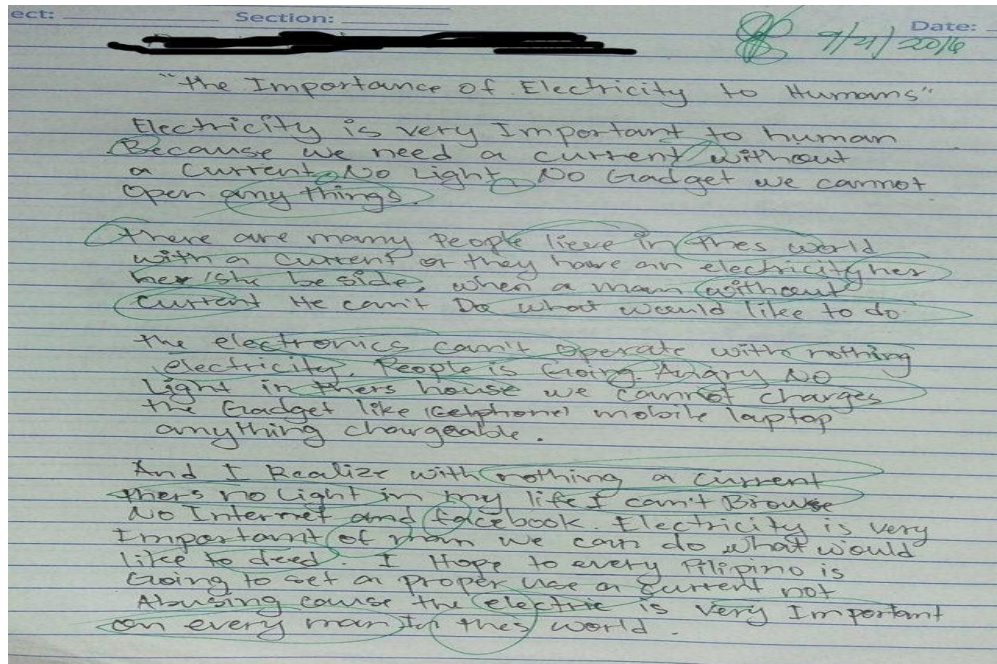 ect: Section: Date:
9/21/2016
"the Importance of Electricity to Humans"
Electricity is very Important to human
Because we need a current without
a Current No Light No Gadget we cannot
Open any things.
there are many People lieve in thes world
with a current or they have an electricity her
her/she be side, when a man without
current He can't Do what would like to do
the electronics can't operate with nothing
electricity. People is Going Angry No
Light in thers house we cannot charges
the Gadget like (Cellphone) mobile laptop
anything chargeable.
And I Realize with nothing a current
thers no Light in my life I can't Browse
No Internet and facebook. Electricity is very
Important of man we can do what would
like to deed. I Hope to every Filipino is
Going to set a proper use a current not
Abusing cause the electric is very Important
on every man in thes world.